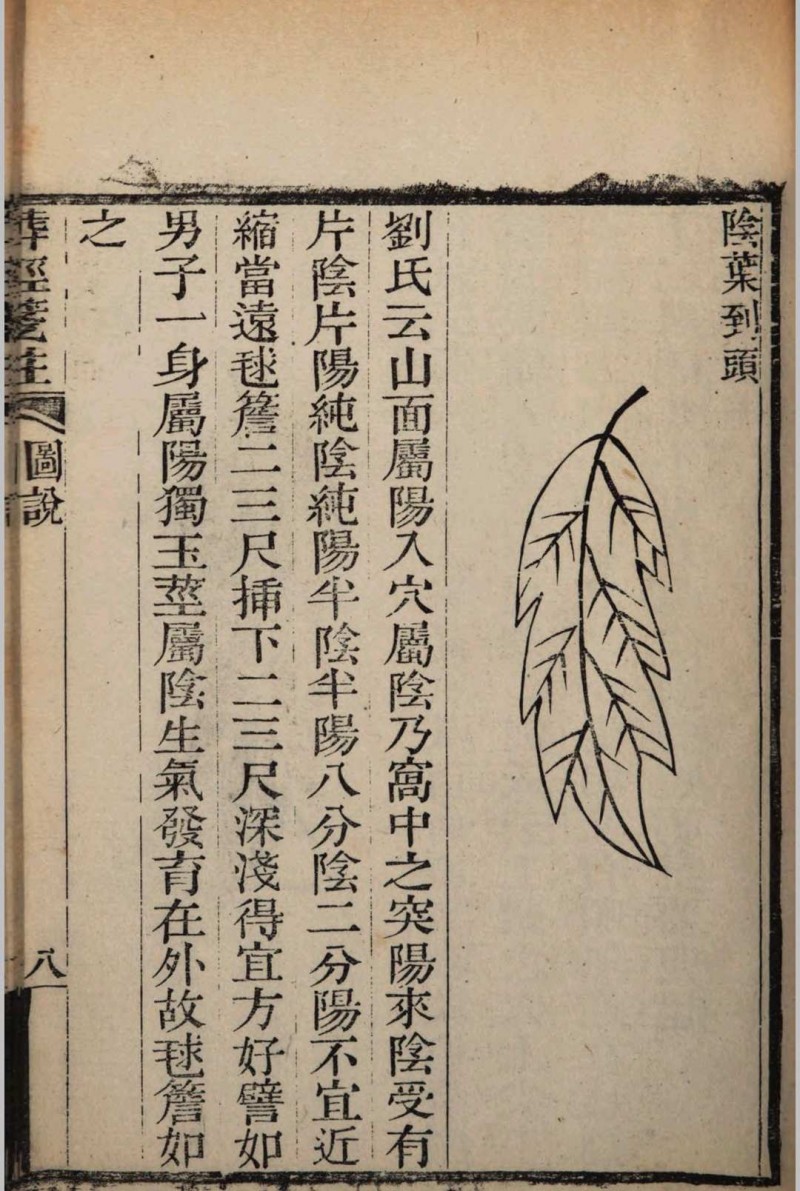 陰葉到頭
劉氏云山面屬陽入穴屬陰乃窩中之突陽來陰受有
片陰片陽純陰純陽半陰半陽八分陰二分陽不宜近
縮當遠毬簷二三尺揷下二三尺深淺得宜方好譬如
男子一身屬陽獨玉莖屬陰生氣發育在外故毬簷如
之
葬經箋註 圖說 八